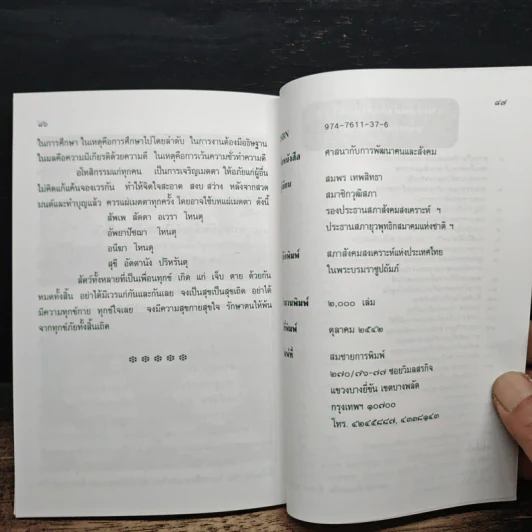 ๘๖
ในการศึกษา ในเหตุคือการศึกษาไปโดยลำดับ ในการงานต้องมีอธิษฐาน
ในผลคือความมีเกียรติด้วยความดี ในเหตุคือการเว้นความชั่วทำความดี
อโหสิกรรมแก่ทุกคน เป็นการเจริญเมตตา ให้อภัยแก่ผู้อื่น
ไม่คิดแก้แค้นจองเวรกัน ทำให้จิตใจสะอาด สงบ สว่าง หลังจากสวด
มนต์และทำบุญแล้ว ควรแผ่เมตตาทุกครั้ง โดยอาจใช้บทแผ่เมตตา ดังนี้
สัพเพ สัตตา อเวรา โหนตุ
อัพยาปัชฌา โหนตุ
อนีฆา โหนตุ
สุขี อัตตานัง ปริหรันตุ
สัตว์ทั้งหลายที่เป็นเพื่อนทุกข์ เกิด แก่ เจ็บ ตาย ด้วยกัน
หมดทั้งสิ้น อย่าได้มีเวรแก่กันและกันเลย จงเป็นสุขเป็นสุขเถิด อย่าได้
มีความทุกข์กาย ทุกข์ใจเลย จงมีความสุขกายสุขใจ รักษาตนให้พ้น
จากทุกข์ภัยทั้งสิ้นเถิด
๘๗
974-7611-37-6
ศาสนากับการพัฒนาคนและสังคม
สมพร เทพสิทธา
สมาชิกวุฒิสภา
รองประธานสภาสังคมสงเคราะห์ ฯ
ประธานสภายุวพุทธิกสมาคมแห่งชาติ ฯ
สภาสังคมสงเคราะห์แห่งประเทศไทย
ในพระบรมราชูปถัมภ์
๒,๐๐๐ เล่ม
ตุลาคม ๒๕๔๒
สมชายการพิมพ์
๒๗๐/๗๖-๗๗ ซอยวิมลสรกิจ
แขวงบางยี่ขัน เขตบางพลัด
กรุงเทพฯ ๑๐๗๐๐
โทร. ๔๒๔๕๘๘๗, ๔๓๓๘๑๔๓